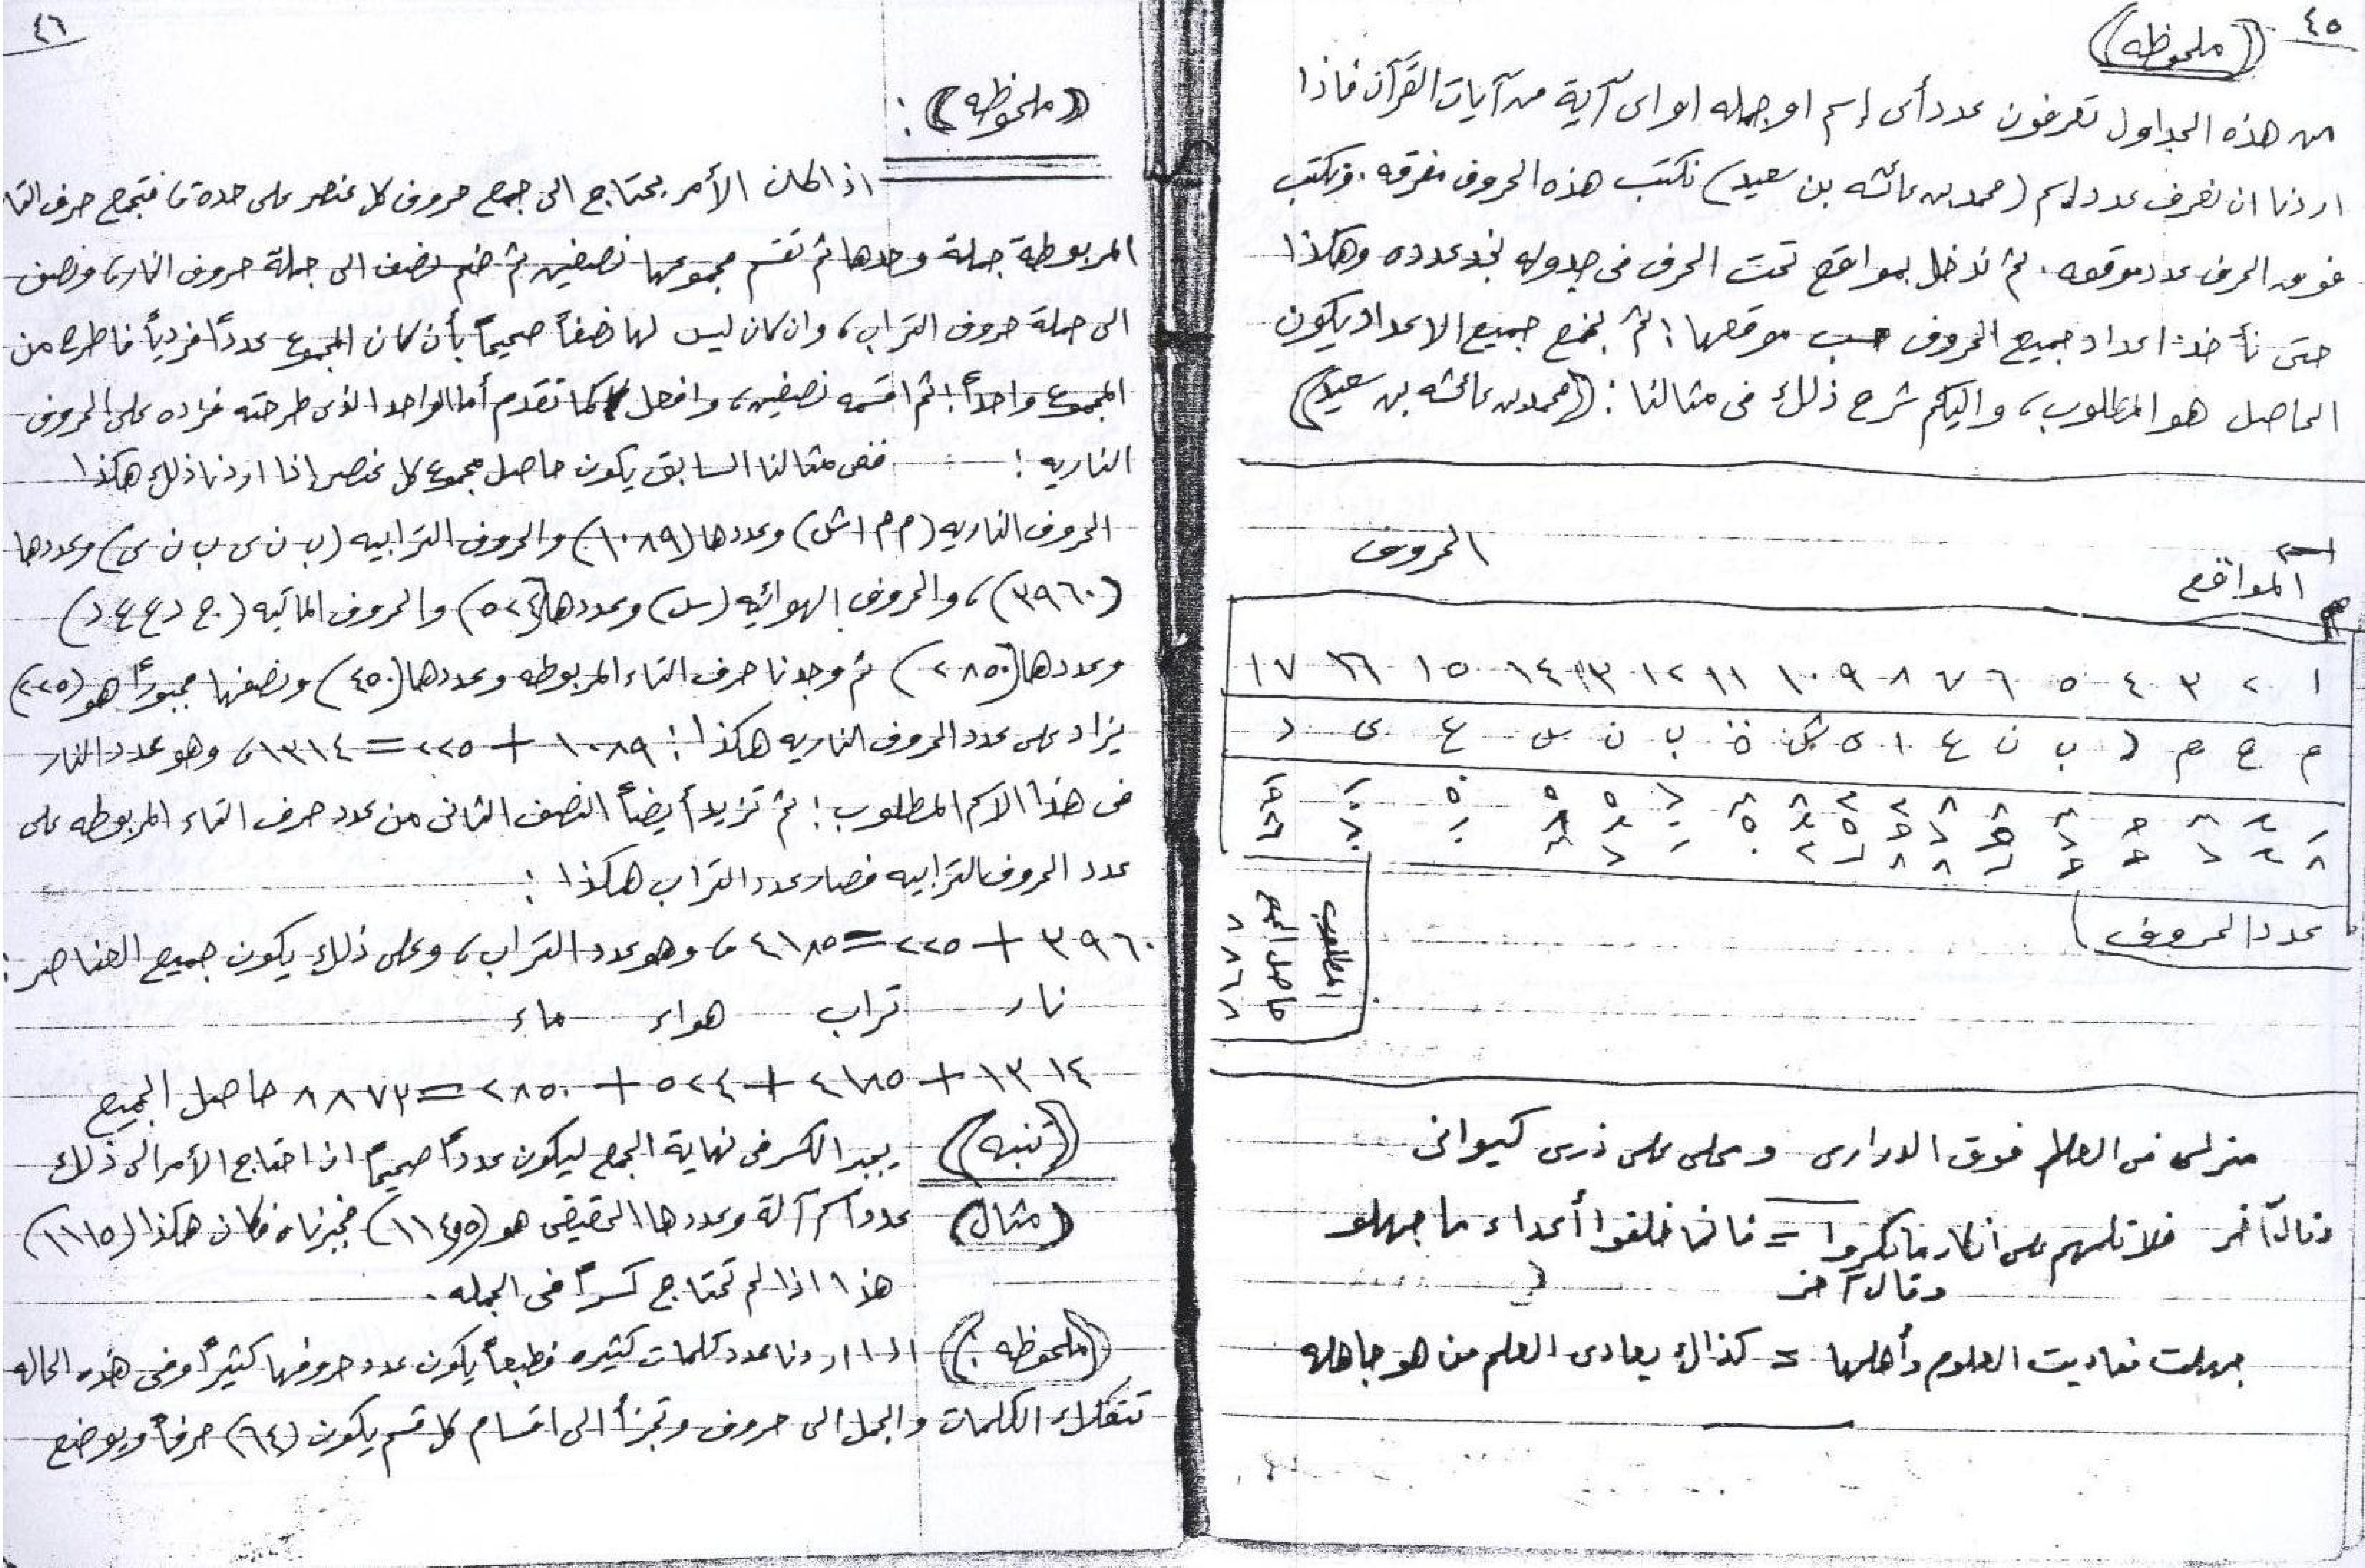 ٤٥
((ملحوظه))
من هذه الجداول تعرفون عدد أى إسم او جمله او اى آية من آيات القرآن فاذا
اردنا ان نعرف عدد اسم (محمد بن عائشه بن سعيد) نكتب هذه الحروف مفرقه. ونكتب
فوق الحرف عدد موقعه. ثم ندخل بمواقع تحت الحرف فى جدوله نجد عدده وهكذا
حتى نأخذ اعداد جميع الحروف حسب موقعها؛ ثم نجمع جميع الاعداد يكون
الحاصل هو المطلوب، واليكم شرح ذلك فى مثالنا: ((محمد بن عائشه بن سعيد))
المواقع الحروف
١ ٢ ٣ ٤ ٥ ٦ ٧ ٨ ٩ ١٠ ١١ ١٢ ١٣ ١٤ ١٥ ١٦ ١٧
م ح م د ب ن ع ا ى ش ة ب ن س ع ى د
عدد الحروف
المطلوب
حاصل الجمع
منزلى فى العلم فوق الدرارى ومحلى على ذرى كيوانى
وقال آخر فلا تلمهم على انكار ما نكروا = فانما خلقوا أعداء ما جهلو
وقال آخر
جهلت فعاديت العلوم وأهلها = كذاك يعادى العلم من هو جاهله
٤٦
((ملحوظه)):
اذا كان الأمر يحتاج الى جمع حروف كل عنصر على حدة، فتجمع حرف التا
المربوطة جملة وحدها ثم تقسم مجموعها نصفين ثم ضم نصف الى جملة حروف النار، ونصف
الى جملة حروف التراب، وان كان ليس لها نصفاً صحيحاً بأن كان المجموع عدداً فردياً فاطرح من
المجموع واحداً؛ ثم اقسمه نصفين، وافعل كما تقدم أما الواحد الذى طرحته فزاده على الحروف
الناريه: ففى مثالنا السابق يكون حاصل مجموع كل عنصر إذا اردنا ذلك هكذا
الحروف الناريه (م م ا ش) وعددها (١٠٨٩) والحروف الترابيه (ب ن ى ب ن ى) وعددها
(٣٩٦٠)، والحروف الهوائيه (س) وعددها (٥٢٤) والحروف المائيه (ح د ع ع د)
وعددها (٢٨٥٠) ثم وجدنا حرف التاء المربوطه وعددها (٤٥٠) ونصفها مجبوراً هو (٢٢٥)
يزاد على عدد الحروف الناريه هكذا: ١٠٨٩ + ٢٢٥ = ١٣١٤، وهو عدد النار
فى هذا الاسم المطلوب؛ ثم تزيد أيضاً النصف الثانى من عدد حرف التاء المربوطه على
عدد الحروف الترابيه فصار عدد التراب هكذا:
٣٩٦٠ + ٢٢٥ = ٤١٨٥، وهو عدد التراب، وعلى ذلك يكون جميع العناصر:
نار تراب هواء ماء
١٣١٤ + ٤١٨٥ + ٥٢٤ + ٢٨٥٠ = ٨٨٧٣ حاصل الجميع
((تنبه)) يجبر الكسر فى نهاية الجمع ليكون عدداً صحيحاً ان احتاج الأمر الى ذلك
(مثال) عدد اسم آلة وعددها الحقيقى هو فجبرناه فكان هكذا (١١١٥)
هذا اذا لم تحتاج كسراً فى الجمله.
((ملحوظه:)) اذا اردنا عدد كلمات كثيره فطبعاً يكون عدد حروفها كثيراً وفى هذه الحاله
تتفكك الكلمات والجمل الى حروف وتجزأ الى اقسام كل قسم يكون (٦٤) حرفاً ويوضع